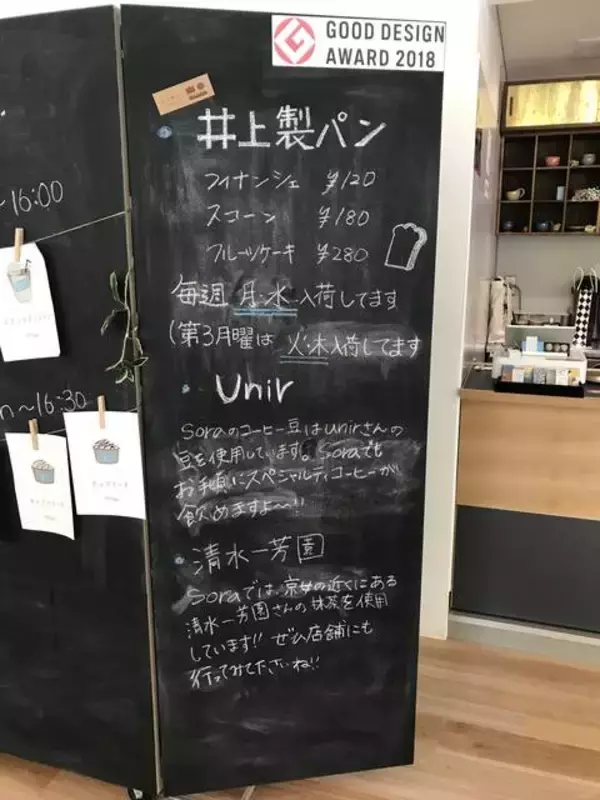 GOOD DESIGN
AWARD 2018
井上製パン
フィナンシェ ¥120
スコーン ¥180
フルーツケーキ ¥280
毎週 月・水 入荷してます
(第3月曜は 火・木入荷してます
~16:00
・ Unir
n~16:30
Soraのコーヒー豆はunirさんの
豆を使用しています。Soraでも
お手頃にスペシャルティコーヒーが
飲めますよ~!!
・清水一芳園
Soraでは、京女の近くにある
清水一芳園さんの抹茶を使用
しています!! ぜひ店舗にも
行ってみて下さいね!!